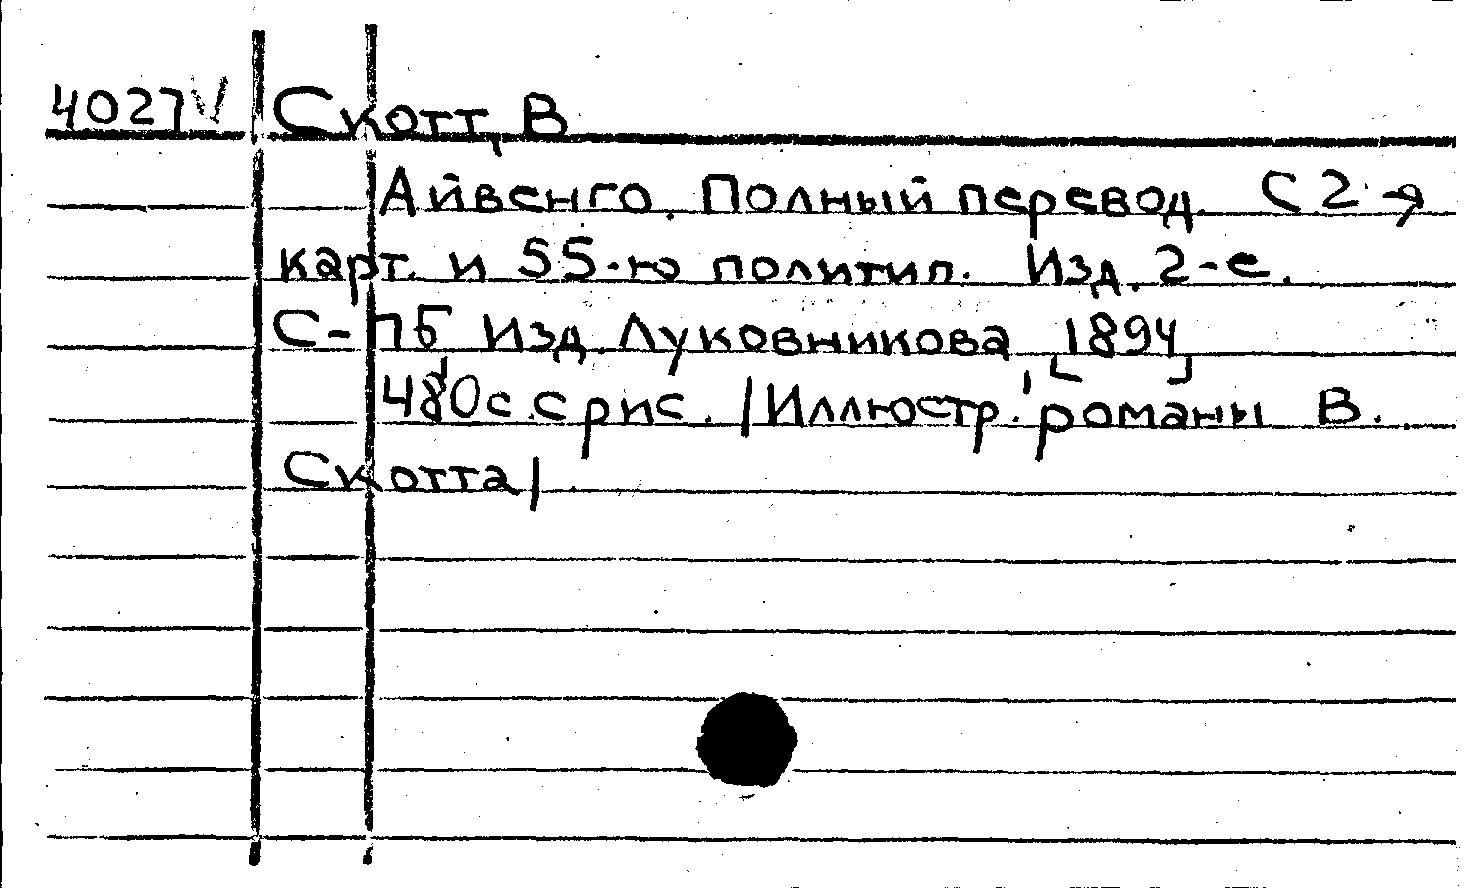 4027 V Скотт, В
Айвенго. Полный перевод. С 2-я
карт. и 55-ю политип. Изд. 2-е.
С-ПБ Изд. Луковникова [1894]
480 с. с рис. /Иллюстр. романы В.
Скотта/.